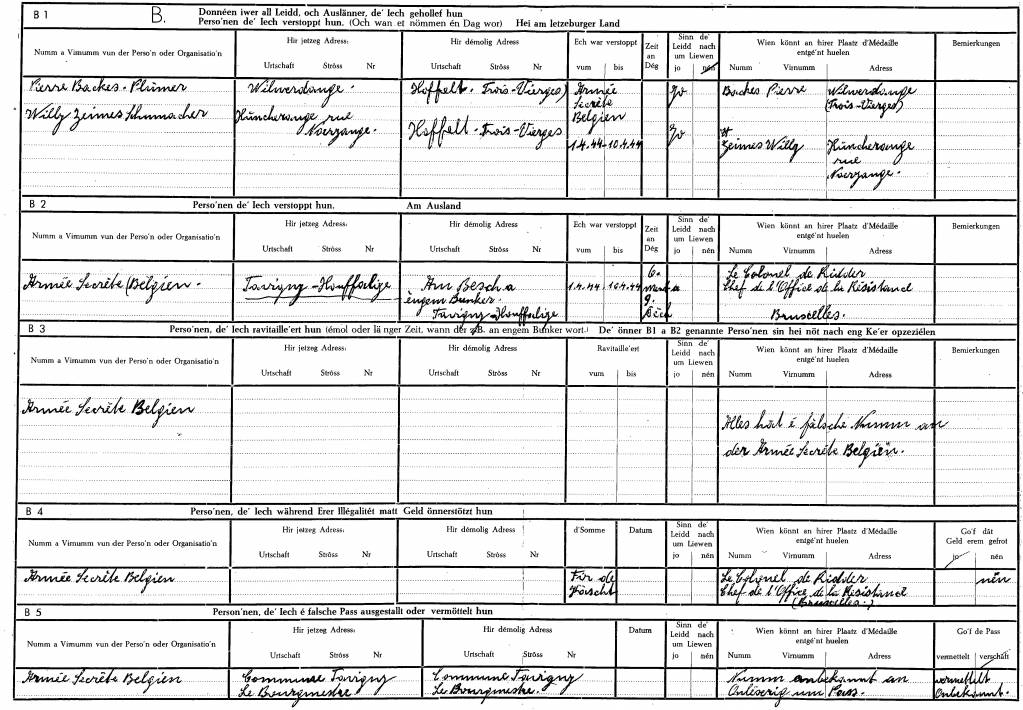 B 1 B. Donnéen iwer all Leidd, och Auslänner, de' Iech gehollef hun
Perso'nen de' Iech verstoppt hun. (Och wan et nömmen én Dag wor) Hei am letzeburger Land
Numm a Virnumm vun der Perso'n oder Organisatio'n
Hir jetzeg Adress:
Urtschaft Ströss Nr
Hir démolig Adress
Urtschaft Ströss Nr
Ech war verstoppt
vum bis
Zeit an Dég
Sinn de' Leidd nach um Liewen
jo nén
Wien könnt an hirer Plaatz d'Médaille entgé'nt huelen
Numm Virnumm Adress
Bemierkungen
Pierre Backes-Plümer Wilwerdange. Hoffelt. Trois-Vierges) Armée Jo Backes Pierre Wilwerdange
Secrète (Trois-Vierges)
Willy Zeimes Schumacher Hüncherange rue Belgien
Noerzange. Hoffelt. Trois-Vierges Jo
1.4.44-10.4.44 Zeimes Willy Hüncherange
rue
Noerzange.
B 2 Perso'nen de' Iech verstoppt hun. Am Ausland
Numm a Virnumm vun der Perso'n oder Organisatio'n
Hir jetzeg Adress:
Urtschaft Ströss Nr
Hir démolig Adress
Urtschaft Ströss Nr
Ech war verstoppt
vum bis
Zeit an Dég
Sinn de' Leidd nach um Liewen
jo nén
Wien könnt an hirer Plaatz d'Médaille entgé'nt huelen
Numm Virnumm Adress
Bemierkungen
6. Le Colonel de Ridder
Armée Secrète (Belgien. Tavigny-Houffalige Am Besch a 1.4.44 10.4.44 Chef de l'Office de la Résistand
èngem Bunker. 9.
Tavigny-Houffalige Bruxelles.
B 3 Perso'nen, de' Iech ravitaille'ert hun (émol oder lä nger Zeit, wann der z/B. an engem Bunker wort.) De' önner B1 a B2 genannte Perso'nen sin hei nöt nach eng Ke'er opzeziélen
Numm a Virnumm vun der Perso'n oder Organisatio'n
Hir jetzeg Adress:
Urtschaft Ströss Nr
Hir démolig Adress
Urtschaft Ströss Nr
Ravitaille'ert
vum bis
Sinn de' Leidd nach um Liewen
jo nén
Wien könnt an hirer Plaatz d'Médaille entgé'nt huelen
Numm Virnumm Adress
Bemierkungen
Armée Secrète Belgien
Alles hat é falsche Numm an
der Armée Secrète Belgien.
B 4 Perso'nen, de' Iech während Erer Illégalitét matt Geld önnerstötzt hun
Numm a Virnumm vun der Perso'n oder Organisatio'n
Hir jetzeg Adress:
Urtschaft Ströss Nr
Hir démolig Adress
Urtschaft Ströss Nr
d'Somme
Datum
Sinn de' Leidd nach um Liewen
jo nén
Wien könnt an hirer Plaatz d'Médaille entgé'nt huelen
Numm Virnumm Adress
Go'f dât Geld erem gefrot
jo nén
Armée Secrète Belgien Fir de Le Colonel de Ridder nén
Chef de l'Office de la Résistand
(Bruxelles.)
B 5 Person'nen, de' Iech é falsche Pass ausgestallt oder vermöttelt hun
Numm a Virnumm vun der Perso'n oder Organisatio'n
Hir jetzeg Adress:
Urtschaft Ströss Nr
Hir démolig Adress
Urtschaft Ströss Nr
Datum
Sinn de' Leidd nach um Liewen
jo nén
Wien könnt an hirer Plaatz d'Médaille entgé'nt huelen
Numm Virnumm Adress
Go'f de Pass
vermettelt verschaft
Armée Secrète Belgien Commune Tavigny Commune Tavigny Numm onbekannt an vermettelt
Le Bourgmestre. Le Bourgmestre. Onlieserig um Pass. Onbekannt.